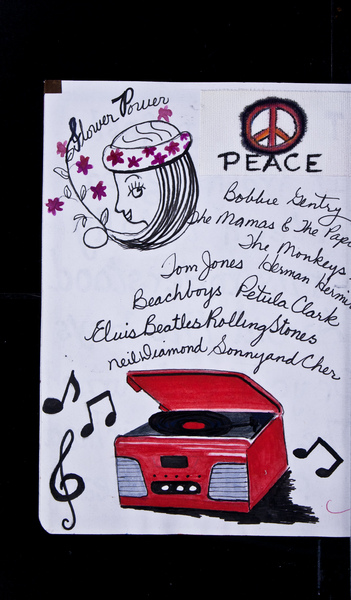 Flower Power
PEACE
Bobbie Gentry
The Mamas & The Papa
The Monkeys
Tom Jones Herman Hermi
Beachboys Petula Clark
Elvis Beatles Rolling Stones
Neil Diamond, Sonny and Cher